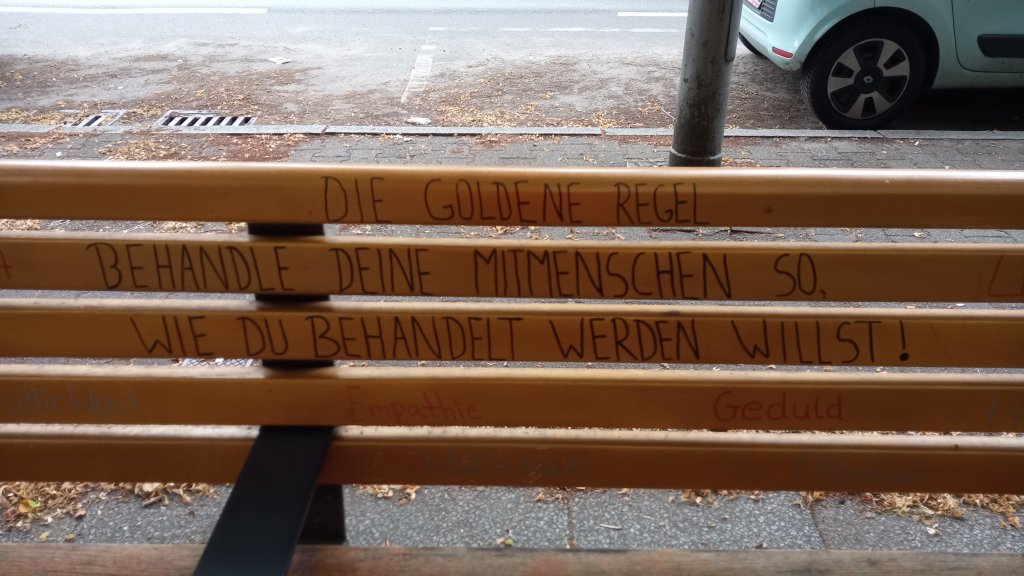 DIE GOLDENE REGEL
BEHANDLE DEINE MITMENSCHEN SO,
WIE DU BEHANDELT WERDEN WILLST!
Empathie Geduld